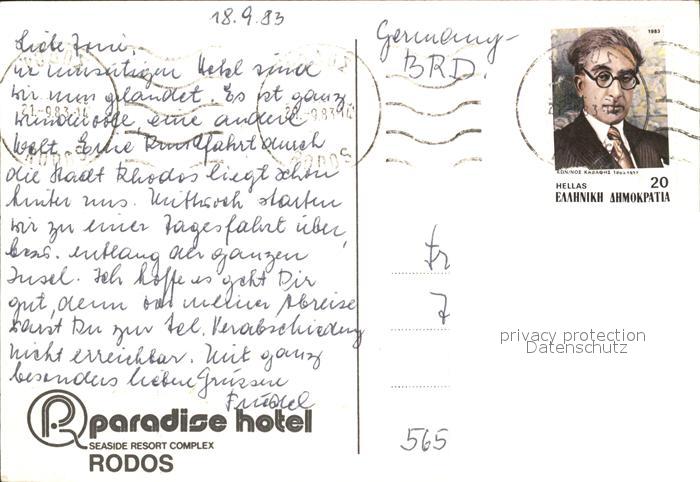 18.9.83
Liebe Toni,
im umseitigen Hotel sind
wir nun gelandet. Es ist ganz
wundervoll eine andere
Welt. Eine Rundfahrt durch
die Stadt Rhodos liegt schon
hinter uns. Mittwoch starten
wir zu einer Tagesfahrt über,
bzw. entlang der ganzen
Insel. Ich hoffe es geht Dir
gut, denn vor meiner Abreise
warst Du zur tel. Verabschiedung
nicht erreichbar. Mit ganz
besonders lieben Grüssen
paradise hotel
SEASIDE RESORT COMPLEX
RODOS
Germany-
BRD.
21-9.83
RODOS
1983
ΚΩΝ/ΝΟΣ ΚΑΒΑΦΗΣ 1863-1933
HELLAS 20
ΕΛΛΗΝΙΚΗ ΔΗΜΟΚΡΑΤΙΑ
Fr
7
565
privacy protection
Datenschutz